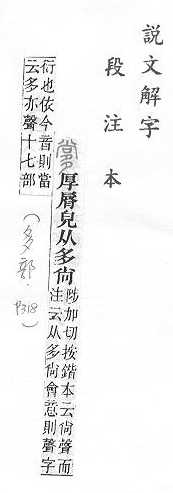 說文解字
段注本
厚脣皃从多尙
陟加切按鍇本云尙聲而
注云从多尙會意則聲字
衍也依今音則當
云多亦聲十七部
(多部.P318)